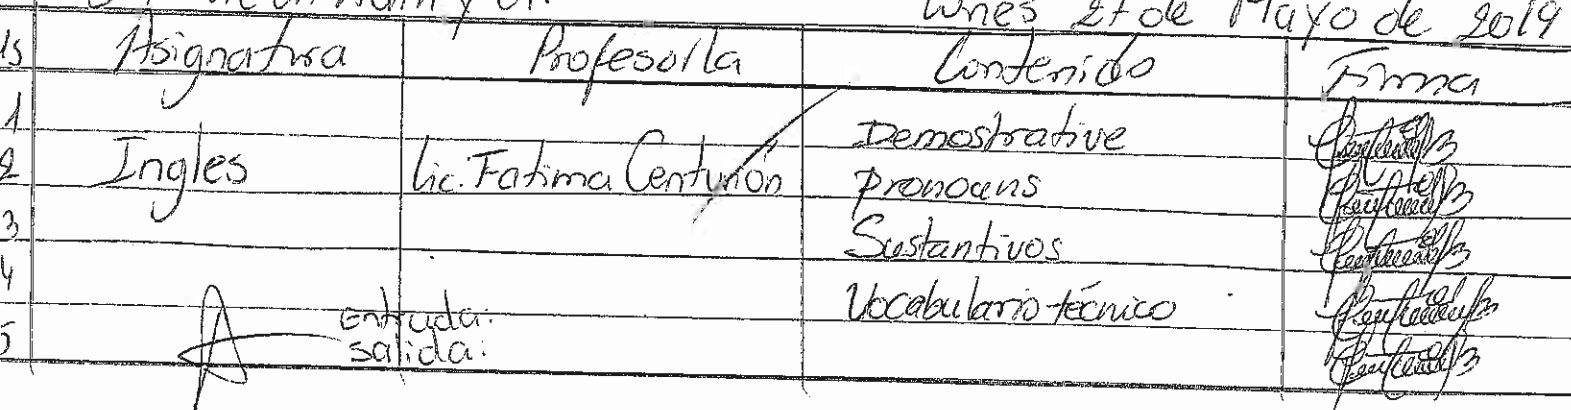 Lunes 27 de Mayo de 2019
Hs Asignatura Profesor/la Contenido Firma
1 Demostrative
2 Ingles Lic. Fatima Centurión Pronouns
3 Sustantivos
4 Vocabulario técnico
Entrada:
5 Salida: